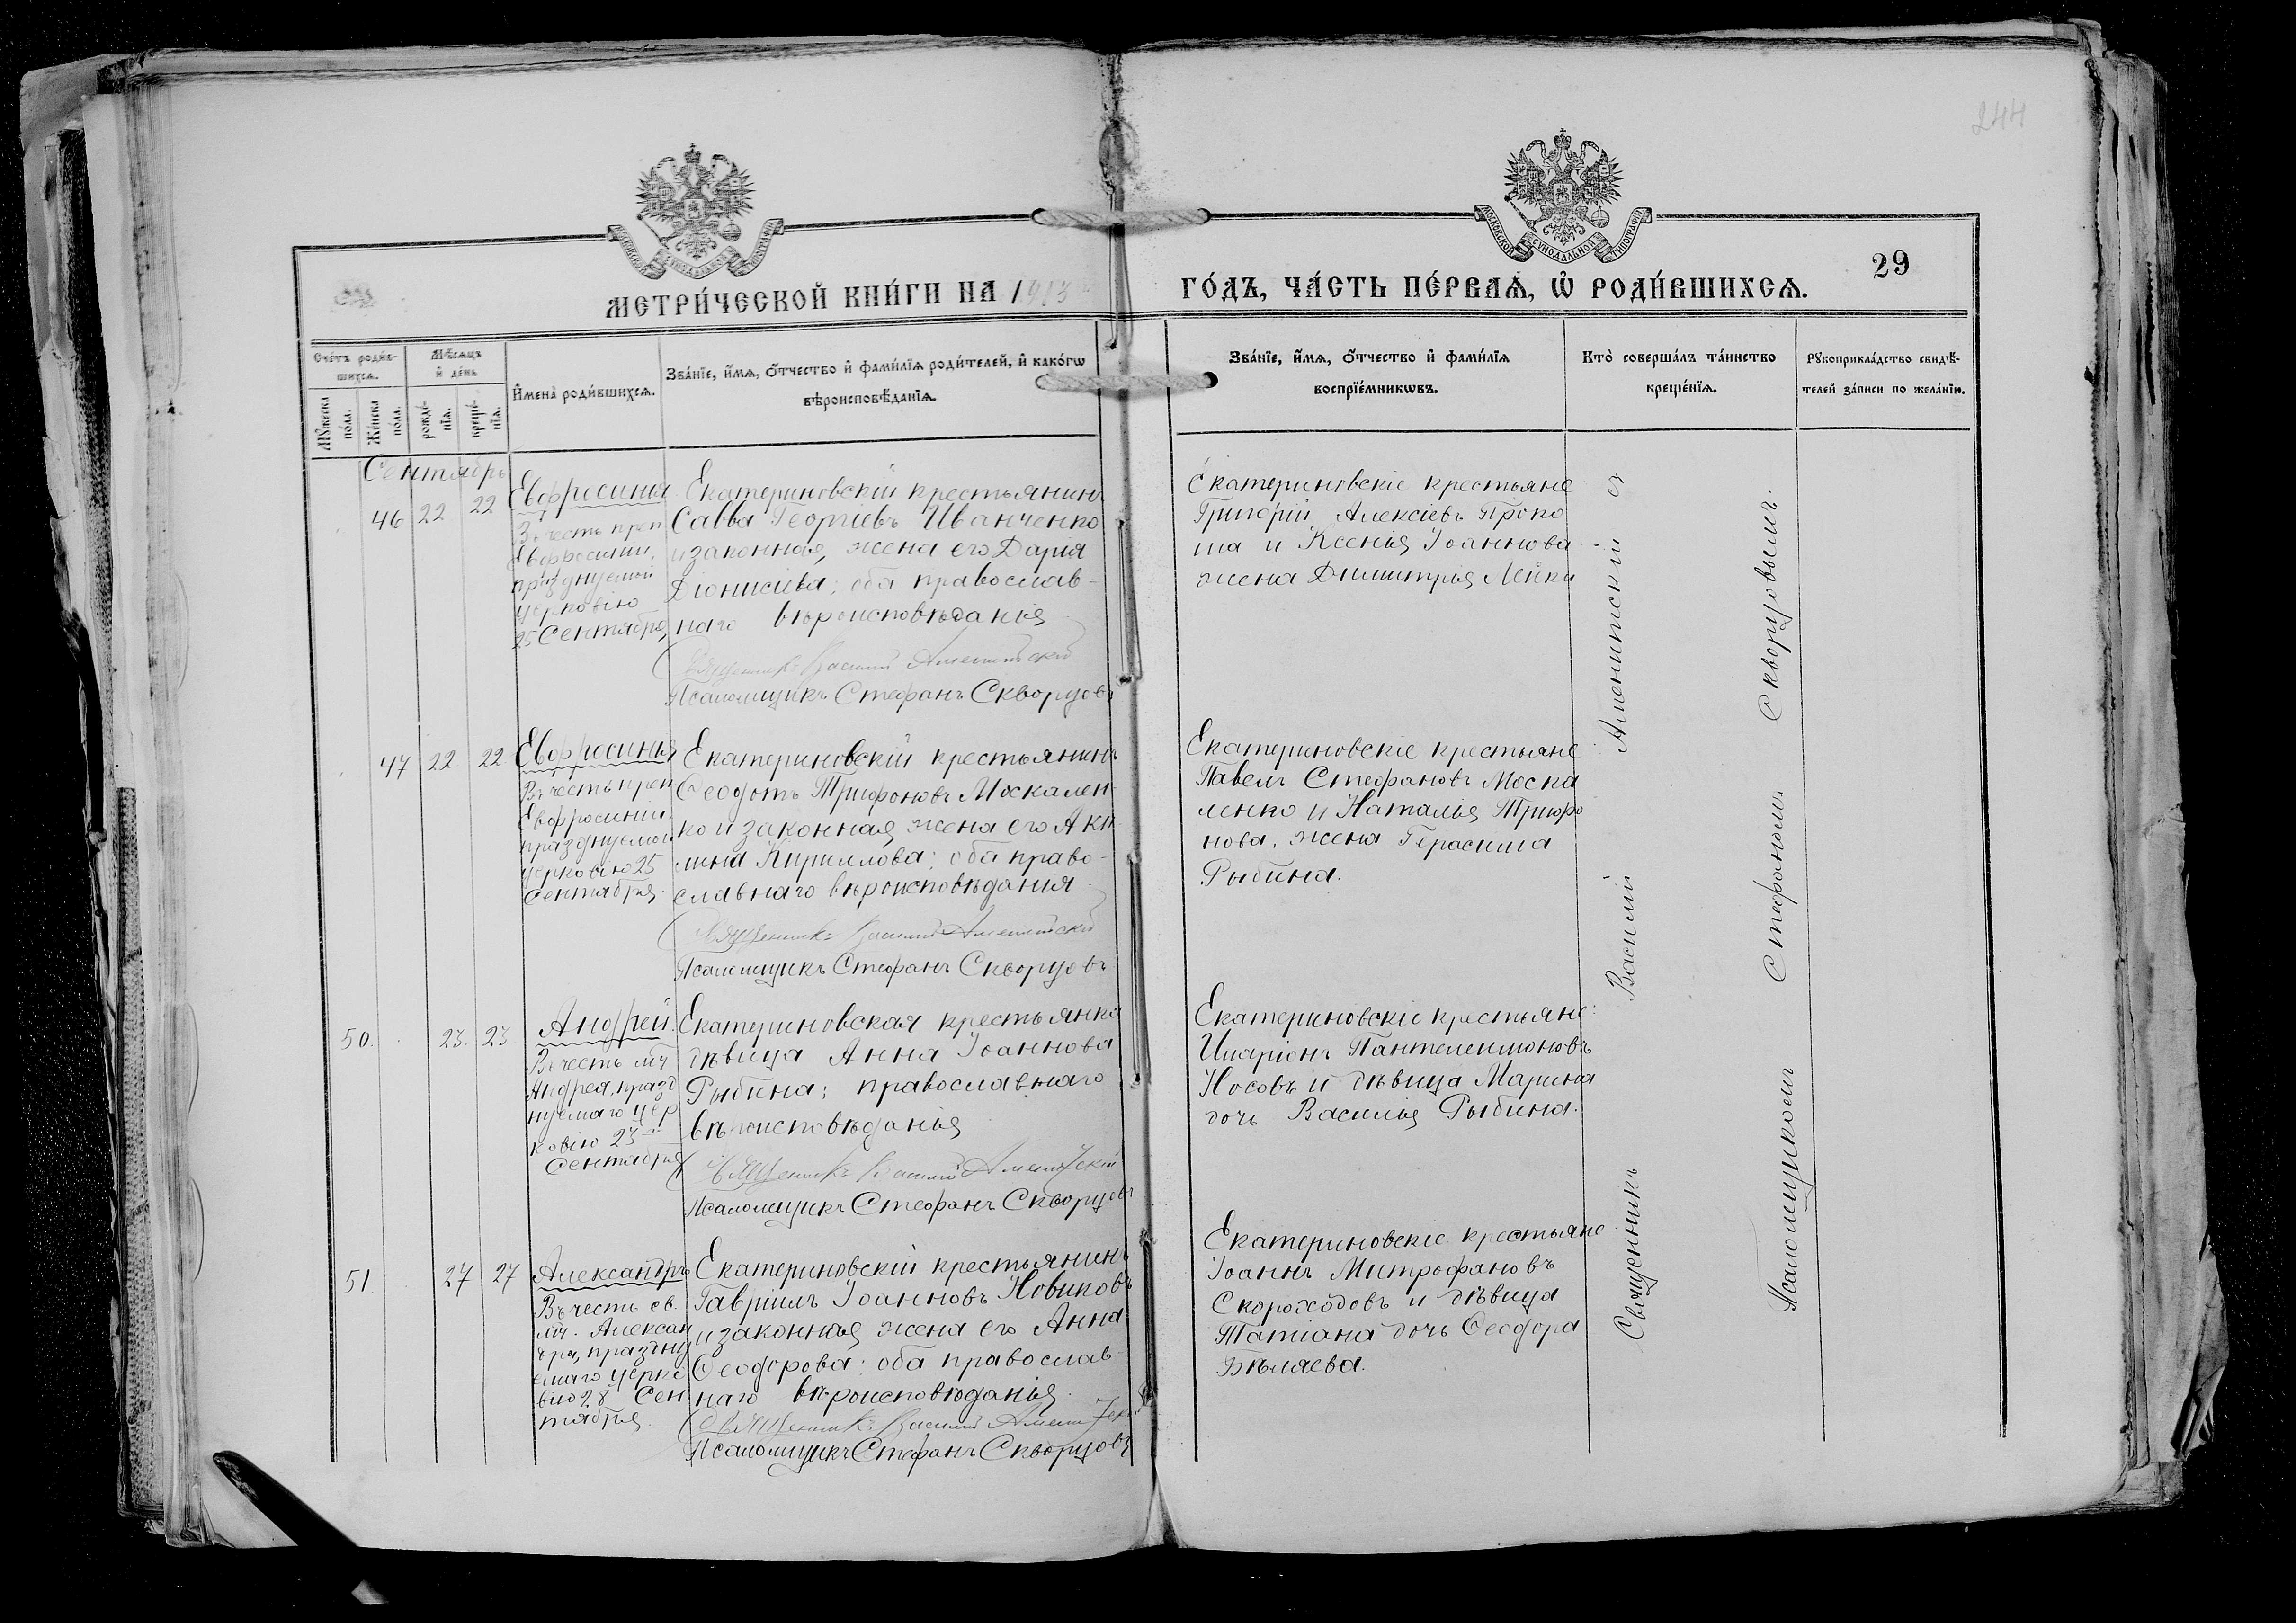 244
МОСКОВСКОЙ СУНОДАЛЬНОЙ ТИПОГРАФІИ
МОСКОВСКОЙ СУНОДАЛЬНОЙ ТИПОГРАФІИ
29
МЕТРИ́ЧЕСКОЙ КНИ́ГИ НА 1913
ГО́ДЪ, ЧА́СТЬ ПЕ́РВАѦ, Ѡ҆ РОДИ́ВШИХСѦ.
Сче́тъ роди́в-
шихсѧ.
Мѣ́сѧцъ
и҆ де́нь
Мꙋ́жеска
по́ла.
Же́нска
по́ла.
рожде́-
нїѧ.
креще́-
нїѧ.
И҆мена̀ роди́вшихсѧ.
Зва́нїе, и҆́мѧ, ѻ҆́тчество и҆ фами́лїѧ роди́телей, и҆ како́гѡ
вѣроисповѣ́данїѧ.
Зва́нїе, и҆́мѧ, ѻ҆́тчество и҆ фами́лїѧ
воспрїе́мникѡвъ.
Кто̀ соверша́лъ та́инство
креще́нїѧ.
Рꙋкоприкла́дство свидѣ́-
телей за́писи по жела́нїю.
Сентябрь
46 22 22
Евфросинія
Въ честь преп
Евфросиніи,
празднуемой
церковію
25 Сентября,
Екатериновскій крестьянинъ
Савва Георгіевъ Иванченко
и законная жена его Дарія
Діонисіева; оба православ-
наго вѣроисповѣданія
Священникъ Василій Аменитскій
Псаломщикъ Стефанъ Скворцовъ
Екатериновскіе крестьяне
Григорій Алексіевъ Проко
ша и Ксенія Іоаннова
жена Димитрія Лейки
47 22 22
Евфросинія
Въ честь преп
Евфросиніи
празднуемой
церковію 25
Сентября.
Екатериновскій крестьянинъ
Ѳеодотъ Трифоновъ Москален-
ко и законная жена его Аки-
лина Кириллова: оба право-
славнаго вѣроисповѣданія
Священникъ Василій Аменитскій
Псаломщикъ Стефанъ Скворцовъ
Екатериновскіе крестьяне
Павелъ Стефановъ Моска
ленко и Наталія Трифо
нова, жена Герасима
Рыбина.
50. 23. 23
Андрей.
Въ честь мч
Андрея, празд
нуемаго цер
ковію 23
Сентября
Екатериновская крестьянка
дѣвица Анна Іоаннова
Рыбина; православнаго
вѣроисповѣданія
Священникъ Василій Аменитскій
Псаломщикъ Стефанъ Скворцовъ
Екатериновскіе крестьяне:
Иларіонъ Пантелеимоновъ
Носовъ и дѣвица Марина
дочь Василія Рыбина.
51. 27 27
Александръ
Въ честь св.
мч. Алексан
дра, праздну
емаго церко
вію 28 Сен
тября.
Екатериновскій крестьянинъ
Гавріилъ Іоанновъ Новиковъ
и законная жена его Анна
Ѳеодорова: оба православ-
наго вѣроисповѣданія.
Священникъ Василій Аменитскій
Псаломщикъ Стефанъ Скворцовъ
Екатериновскіе крестьяне
Іоаннъ Митрофановъ
Скороходовъ и дѣвица
Татіана дочь Ѳеодора
Бѣляева.
Священникъ Василій Аменитскій съ
Псаломщикомъ Стефаномъ Скворцовымъ.